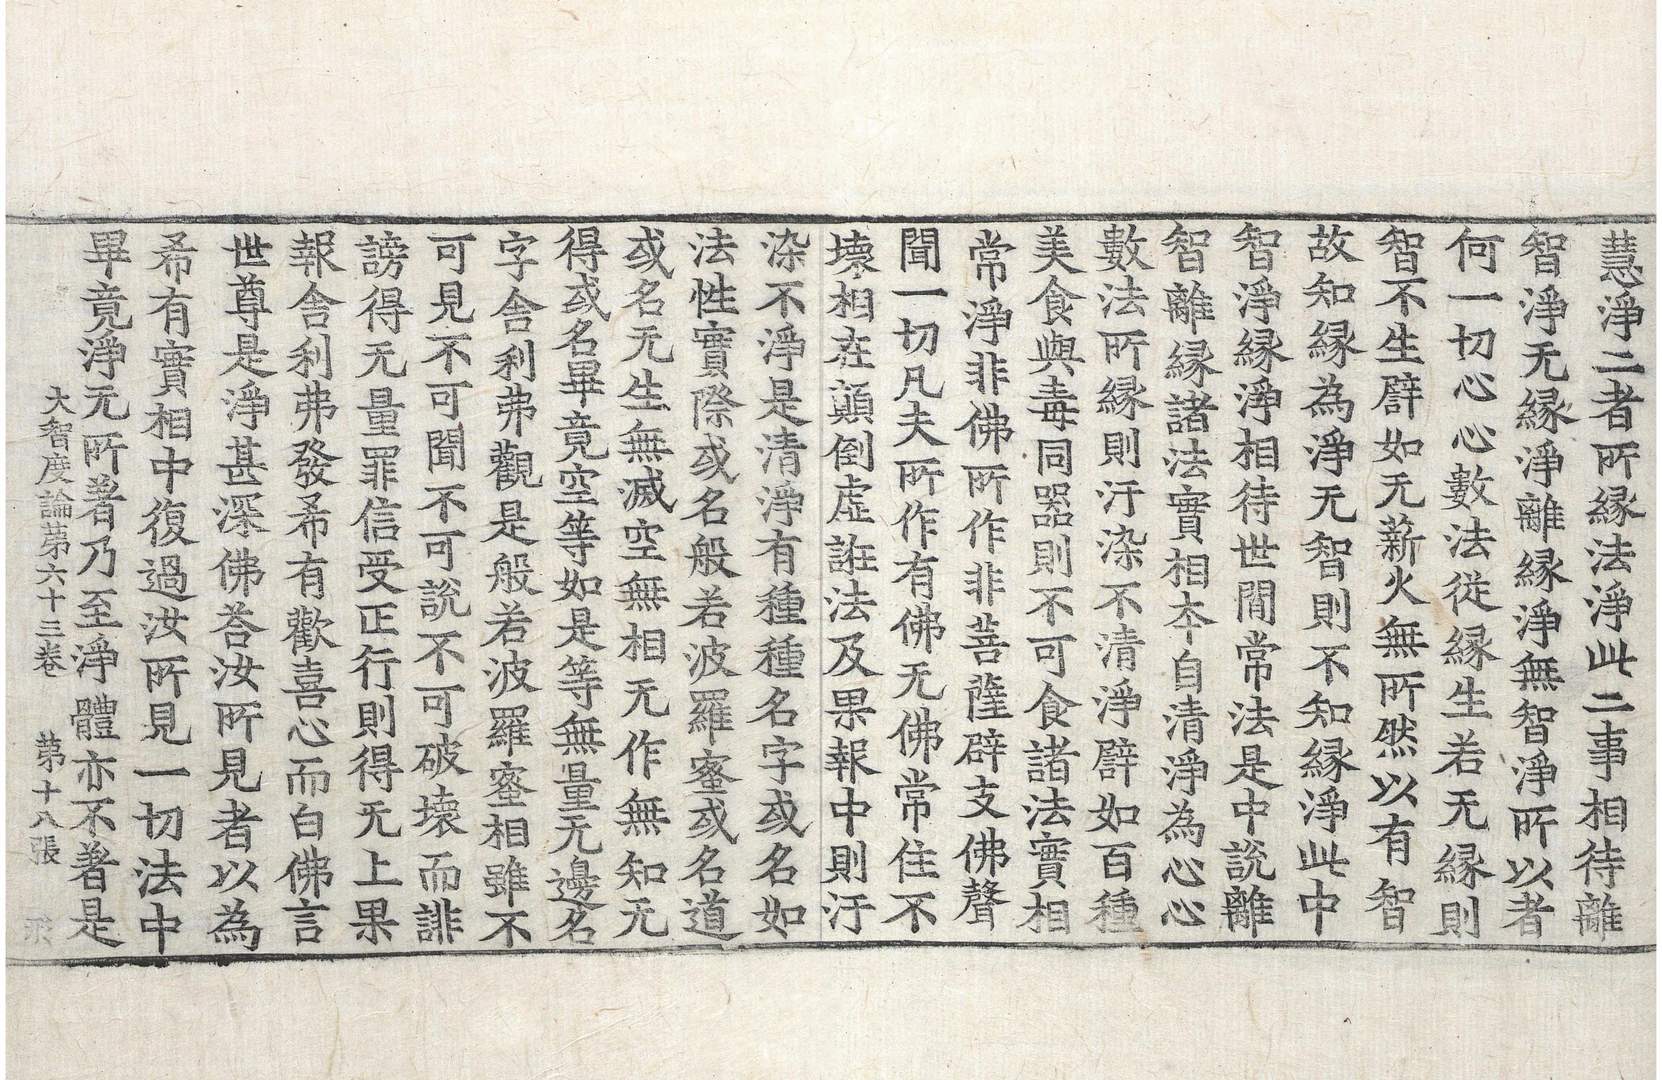 慧淨二者所緣法淨此二事相待離
智淨无緣淨離緣淨無智淨所以者
何一切心心數法從緣生若无緣則
智不生譬如无薪火無所然以有智
故知緣為淨无智則不知緣淨此中
智淨緣淨相待世間常法是中說離
智離緣諸法實相夲自清淨為心心
數法所緣則汙染不清淨譬如百種
美食與毒同器則不可食諸法實相
常淨非佛所作非菩薩辟支佛聲
聞一切凡夫所作有佛无佛常住不
壞相在顛倒虛誑法及果報中則汙
染不淨是清淨有種種名字或名如
法性實際或名般若波羅蜜或名道
或名无生無滅空無相无作無知无
得或名畢竟空等如是等無量无邊名
字舍利弗觀是般若波羅蜜相雖不
可見不可聞不可說不可破壞而誹
謗得无量罪信受正行則得无上果
報舍利弗發希有歡喜心而白佛言
世尊是淨甚深佛荅汝所見者以為
希有實相中復過汝所見一切法中
畢竟淨无所著乃至淨體亦不著是
大智度論第六十三卷 第十八張